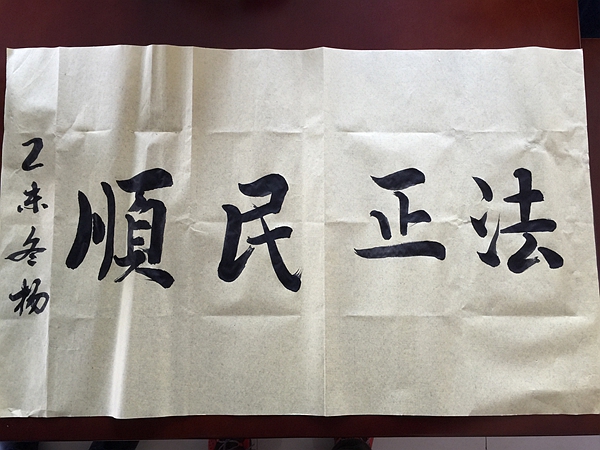 法正民順
乙未冬楊